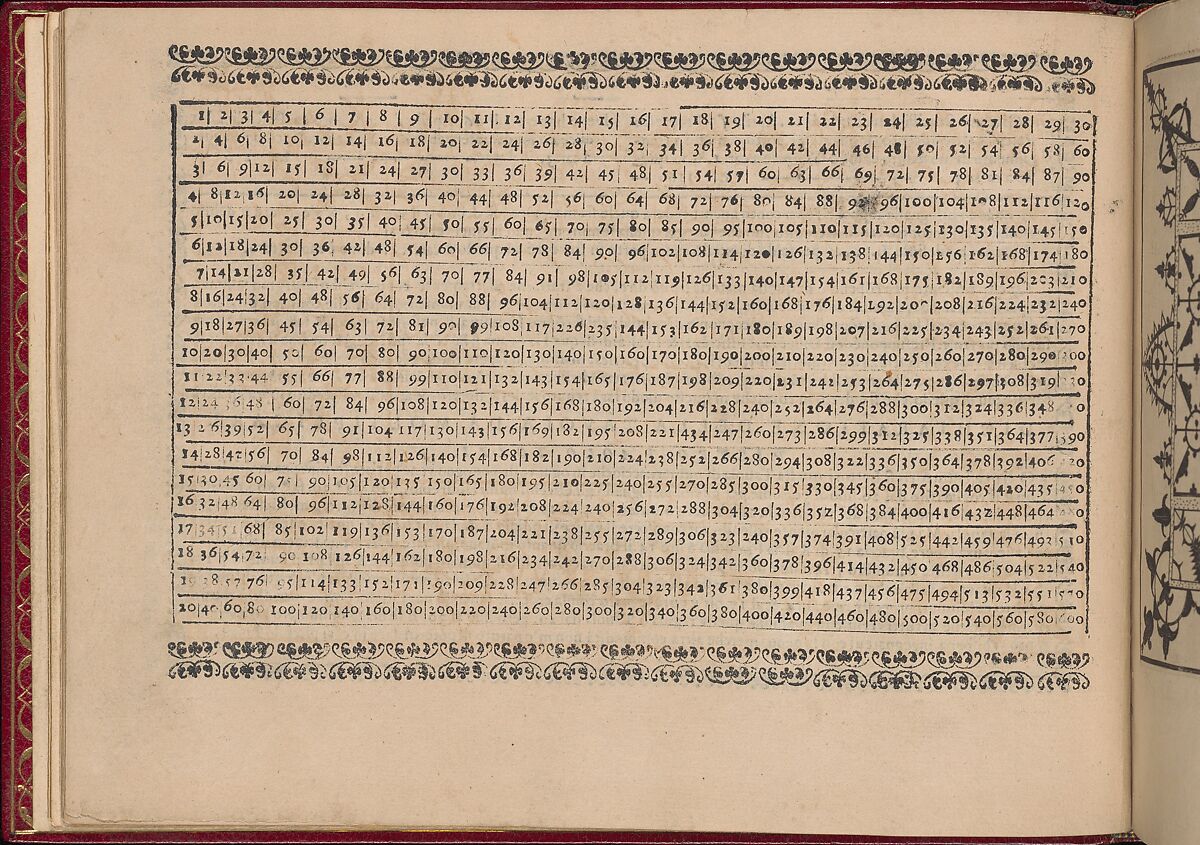 1| 2| 3| 4| 5| 6| 7| 8| 9| 10| 11| 12| 13| 14| 15| 16| 17| 18| 19| 20| 21| 22| 23| 24| 25| 26| 27| 28| 29| 30
2| 4| 6| 8| 10| 12| 14| 16| 18| 20| 22| 24| 26| 28| 30| 32| 34| 36| 38| 40| 42| 44| 46| 48| 50| 52| 54| 56| 58| 60
3| 6| 9|12| 15| 18| 21| 24| 27| 30| 33| 36| 39| 42| 45| 48| 51| 54| 57| 60| 63| 66| 69| 72| 75| 78| 81| 84| 87| 90
4| 8|12|16| 20| 24| 28| 32| 36| 40| 44| 48| 52| 56| 60| 64| 68| 72| 76| 80| 84| 88| 92| 96|100|104|108|112|116|120
5|10|15|20| 25| 30| 35| 40| 45| 50| 55| 60| 65| 70| 75| 80| 85| 90| 95|100|105|110|115|120|125|130|135|140|145|150
6|12|18|24| 30| 36| 42| 48| 54| 60| 66| 72| 78| 84| 90| 96|102|108|114|120|126|132|138|144|150|156|162|168|174|180
7|14|21|28| 35| 42| 49| 56| 63| 70| 77| 84| 91| 98|105|112|119|126|133|140|147|154|161|168|175|182|189|196|203|210
8|16|24|32| 40| 48| 56| 64| 72| 80| 88| 96|104|112|120|128|136|144|152|160|168|176|184|192|200|208|216|224|232|240
9|18|27|36| 45| 54| 63| 72| 81| 90| 99|108|117|226|235|144|153|162|171|180|189|198|207|216|225|234|243|252|261|270
10|20|30|40| 50| 60| 70| 80| 90|100|110|120|130|140|150|160|170|180|190|200|210|220|230|240|250|260|270|280|290|300
11|22|33|44| 55| 66| 77| 88| 99|110|121|132|143|154|165|176|187|198|209|220|231|242|253|264|275|286|297|308|319|
12|24|36|48| 60| 72| 84| 96|108|120|132|144|156|168|180|192|204|216|228|240|252|264|276|288|300|312|324|336|348
13|26|39|52| 65| 78| 91|104|117|130|143|156|169|182|195|208|221|434|247|260|273|286|299|312|325|338|351|364|377|390
14|28|42|56| 70| 84| 98|112|126|140|154|168|182|190|210|224|238|252|266|280|294|308|322|336|350|364|378|392|406
15|30|45|60| 75| 90|105|120|135|150|165|180|195|210|225|240|255|270|285|300|315|330|345|360|375|390|405|420|435
16|32|48|64| 80| 96|112|128|144|160|176|192|208|224|240|256|272|288|304|320|336|352|368|384|400|416|432|448|464
17|34|51|68| 85|102|119|136|153|170|187|204|221|238|255|272|289|306|323|240|357|374|391|408|525|442|459|476|493|510
18|36|54|72| 90|108|126|144|162|180|198|216|234|242|270|288|306|324|342|360|378|396|414|432|450|468|486|504|522|540
19|38|57|76| 95|114|133|152|171|190|209|228|247|266|285|304|323|342|361|380|399|418|437|456|475|494|513|532|551|570
20|40|60|80|100|120|140|160|180|200|220|240|260|280|300|320|340|360|380|400|420|440|460|480|500|520|540|560|580|600